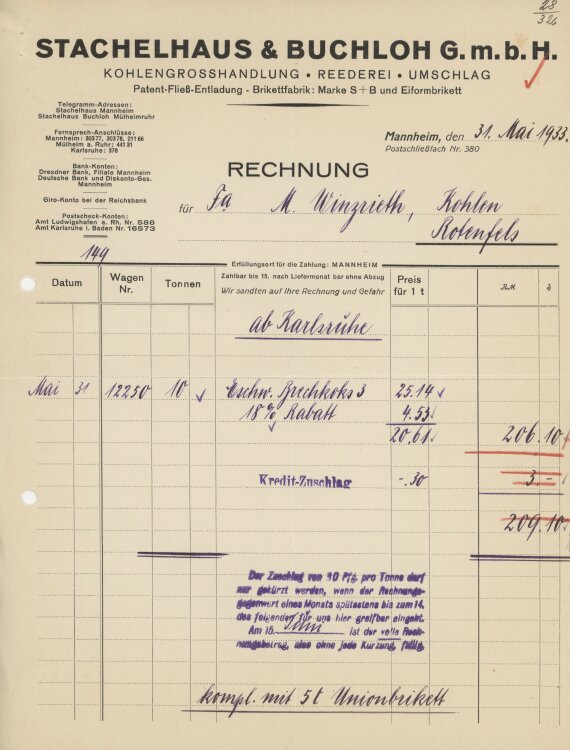 28
326
STACHELHAUS & BUCHLOH G.m.b.H.
KOHLENGROSSHANDLUNG • REEDEREI • UMSCHLAG
Patent-Fließ-Entladung - Brikettfabrik: Marke S+B und Eiformbrikett
Telegramm-Adressen:
Stachelhaus Mannheim
Stachelhaus Buchloh Mülheimruhr
Fernsprech-Anschlüsse:
Mannheim: 30377, 30378, 21166
Mülheim a. Ruhr: 44131
Karlsruhe: 378
Bank-Konten:
Dresdner Bank, Filiale Mannheim
Deutsche Bank und Diskonto-Ges.
Mannheim
Giro-Konto bei der Reichsbank
Postscheck-Konten:
Amt Ludwigshafen a. Rh. Nr. 588
Amt Karlsruhe i. Baden Nr. 16573
Mannheim, den 31. Mai 1933.
Postschließfach Nr. 380
RECHNUNG
für Fa M. Winzrieth, Kohlen
Rotenfels
149
Erfüllungsort für die Zahlung: MANNHEIM
Datum Wagen Nr. Tonnen Zahlbar bis 15. nach Liefermonat bar ohne Abzug Preis für 1 t RM
Wir sandten auf Ihre Rechnung und Gefahr
ab Karlsruhe
Mai 31 12250 10 Eschw. Brechkoks 3 25.14
18% Rabatt 4.53
20.61 206.10
Kredit-Zuschlag -.30 3.-
209.10
Der Zuschlag von 30 Pfg. pro Tonne darf
nur gekürzt werden, wenn der Rechnungs-
gegenwert eines Monats spätestens bis zum 14.
des folgenden für uns hier greifbar eingeht.
Am 15. Juni ist der volle Rech-
nungsbetrag, also ohne jede Kürzung, fällig.
kompl. mit 5t Unionbrikett